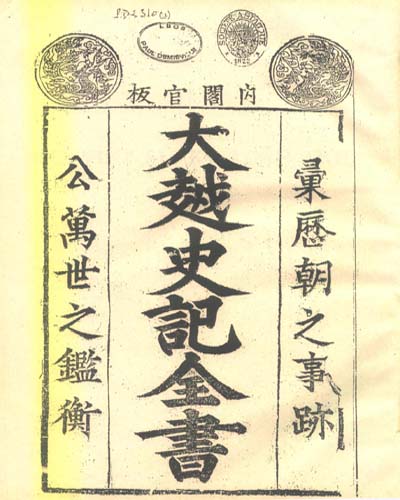 SOCIÉTÉ ASIATIQUE
1822
PAUL DEMIÉVILLE
內閣官板
彙歷朝之事跡
大越史記全書
公萬世之鑑衡